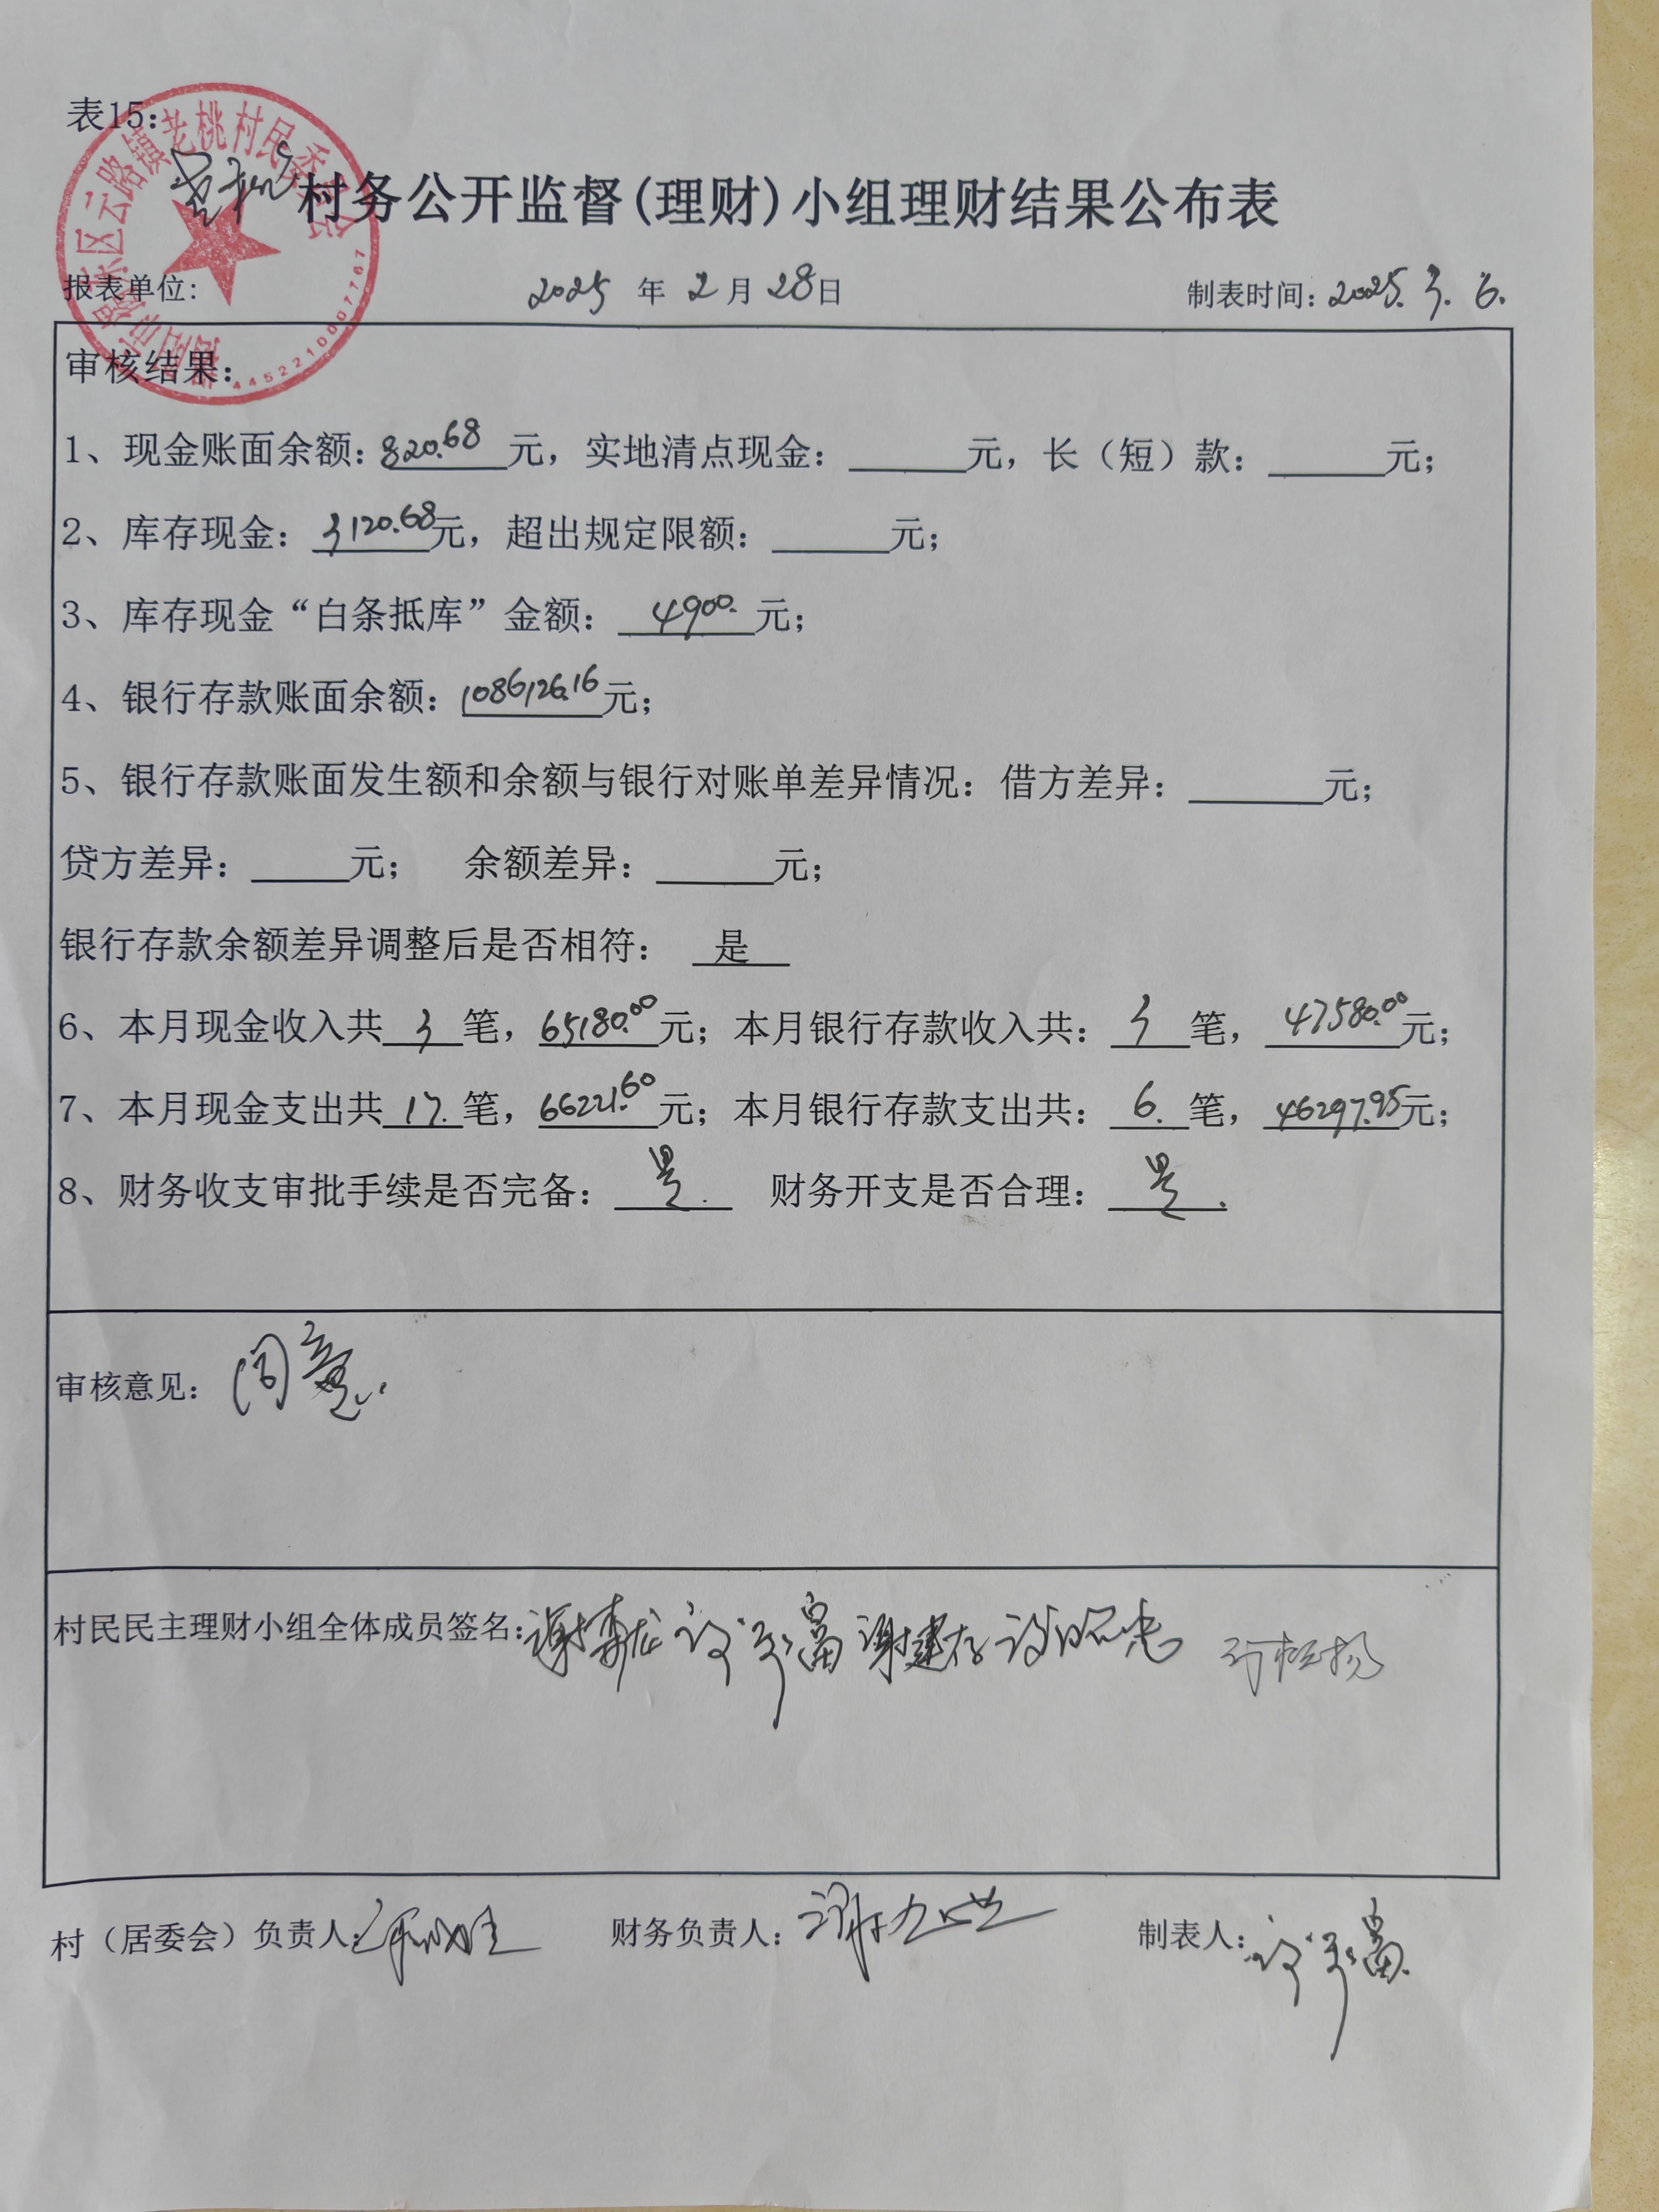 表15：
老桃村务公开监督(理财)小组理财结果公布表
揭阳市揭东区云路镇老桃村民委员会
4452210007767
报表单位： 2025 年 2 月 28日 制表时间：2025.3.6.
审核结果：
1、现金账面余额：820.68元，实地清点现金：______元，长（短）款：______元；
2、库存现金：3120.68元，超出规定限额：______元；
3、库存现金“白条抵库”金额：4900.元；
4、银行存款账面余额：1086126.16元；
5、银行存款账面发生额和余额与银行对账单差异情况：借方差异：______元；
贷方差异：_____元； 余额差异：______元；
银行存款余额差异调整后是否相符：是
6、本月现金收入共3笔，65180.00元；本月银行存款收入共：3笔，47580.00元；
7、本月现金支出共17.笔，66221.60元；本月银行存款支出共：6.笔，46297.95元；
8、财务收支审批手续是否完备：是. 财务开支是否合理：是.
审核意见：同意.
村民民主理财小组全体成员签名： 谢建存
村（居委会）负责人： 财务负责人： 制表人：